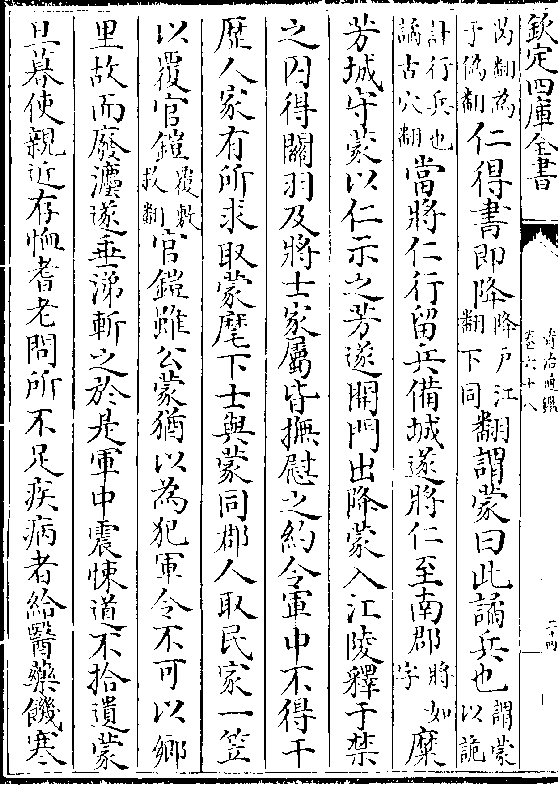 欽定四庫全書
資治通鑑
卷六十八
二十四
為翻為于偽翻仁得書即降降戶江翻下同翻謂蒙曰此譎兵也謂蒙以詭
計行兵也譎古穴翻當將仁行留兵備城遂將仁至南郡將如字糜
芳城守蒙以仁示之芳遂開門出降蒙入江陵釋于禁
之囚得關羽及將士家屬皆撫慰之約令軍中不得干
歷人家有所求取蒙麾下士與蒙同郡人取民家一笠
以覆官鎧覆敷救翻官鎧雖公蒙猶以為犯軍令不可以鄉
里故而廢灋遂垂涕斬之於是軍中震悚道不拾遺蒙
旦暮使親近存恤耆老問所不足疾病者給醫藥饑寒